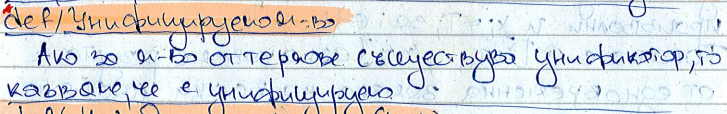 def/ Унифицируемо м-во
Ако за м-во от термове съществува унификатор, то
казваме, че е унифицируемо